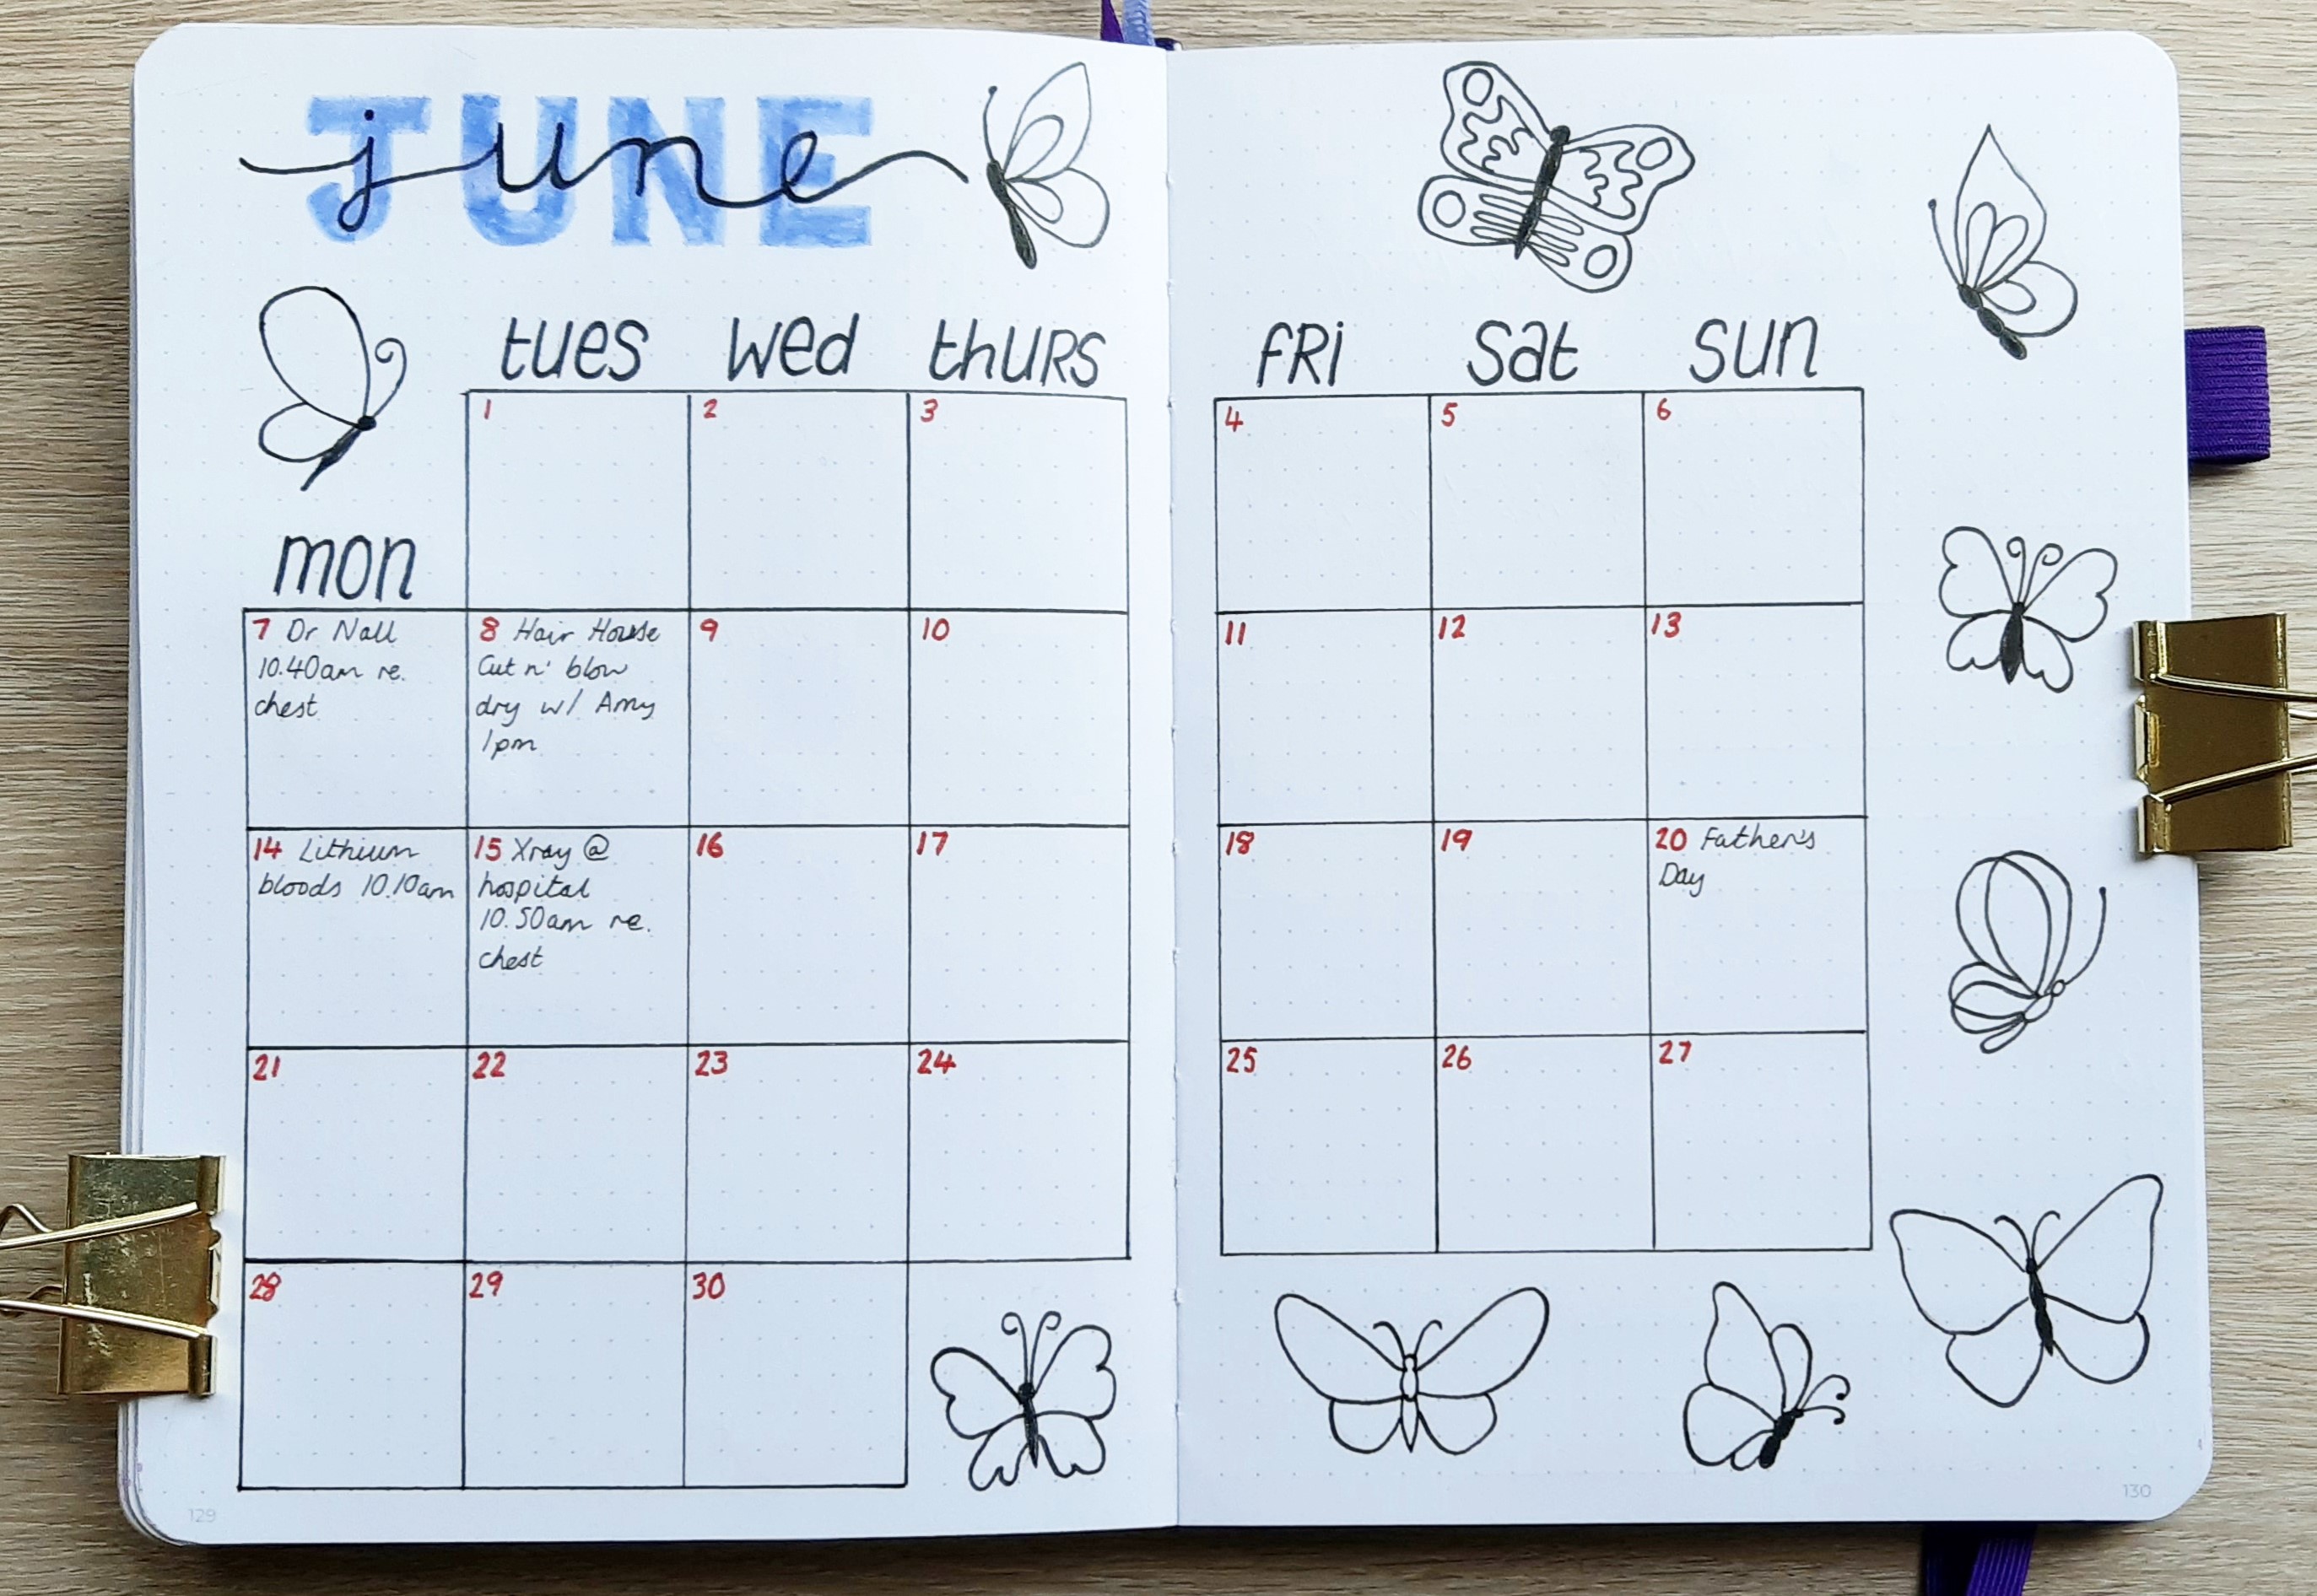 JUNE
june
tues wed thurs fri sat sun
mon
1 2 3 4 5 6
7 Dr Nall
10.40am re.
chest
8 Hair House
Cut n' blow
dry w/ Amy
1pm
9 10 11 12 13
14 Lithium
bloods 10.10am
15 Xray @
hospital
10.50am re.
chest
16 17 18 19
20 Father's
Day
21 22 23 24 25 26 27
28 29 30
129
130